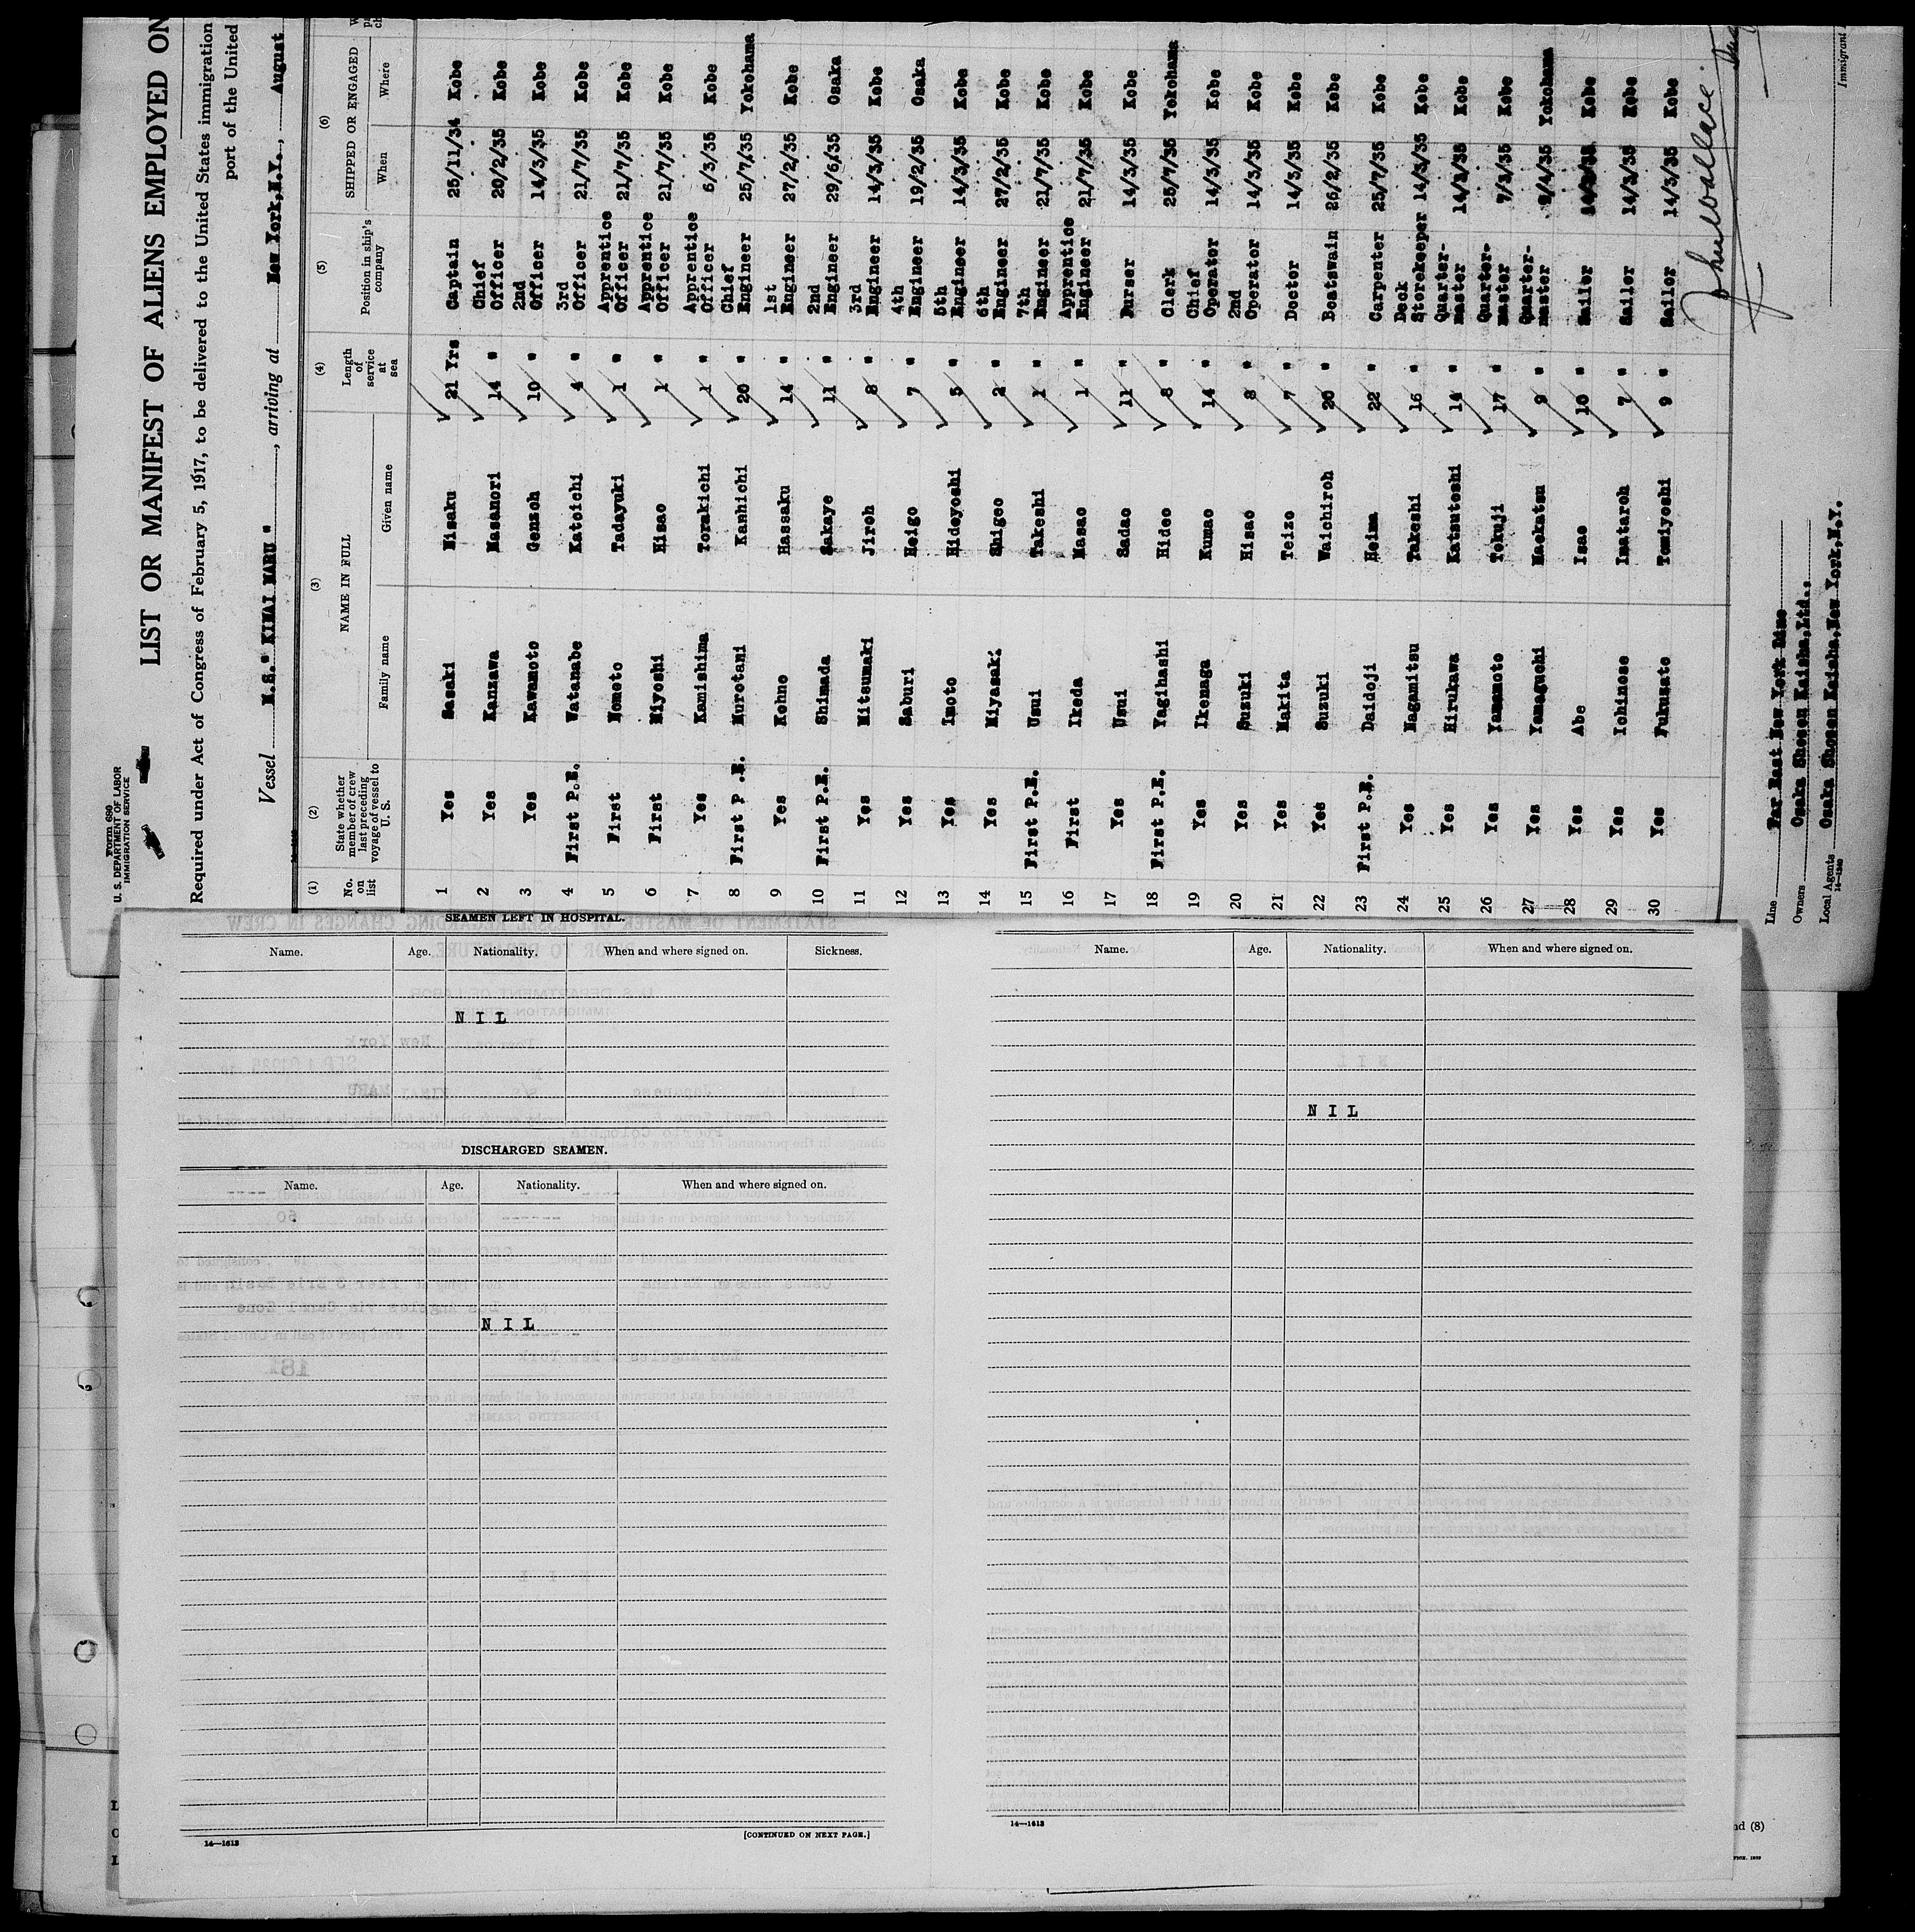 Form 680
U. S. DEPARTMENT OF LABOR
IMMIGRATION SERVICE
LIST OR MANIFEST OF ALIENS EMPLOYED ON
Required under Act of Congress of February 5, 1917, to be delivered to the United States immigration
port of the United
Vessel M.S." KINAI MARU ", arriving at New York,N.Y., August
(1) (2) (3) (4) (5) (6)
No. on list State whether member of crew last preceding voyage of vessel to U. S. NAME IN FULL Length of service at sea Position in ship's company SHIPPED OR ENGAGED
Family name Given name When Where
1 Yes Sasaki Hisaku 21 Yrs Captain 25/11/34 Kobe
2 Yes Kanzawa Masanori 14 " Chief Officer 20/2/35 Kobe
3 Yes Kawamoto Genzoh 10 " 2nd Officer 14/3/35 Kobe
4 First P.E. Watanabe Katoichi 4 " 3rd Officer 21/7/35 Kobe
5 First Nomoto Tadayuki 1 " Apprentice Officer 21/7/35 Kobe
6 First Miyoshi Hisao 1 " Apprentice Officer 21/7/35 Kobe
7 Yes Kamishima Torakichi 1 " Apprentice Officer 6/3/35 Kobe
8 First P.E. Murotani Kanhichi 20 " Chief Engineer 25/7/35 Yokohama
9 Yes Kohno Hassaku 14 " 1st Engineer 27/2/35 Kobe
10 First P.E. Shimada Sakaye 11 " 2nd Engineer 29/6/35 Osaka
11 Yes Mitsumaki Jiroh 8 " 3rd Engineer 14/3/35 Kobe
12 Yes Saburi Heigo 7 " 4th Engineer 19/2/35 Osaka
13 Yes Imoto Hideyoshi 5 " 5th Engineer 14/3/35 Kobe
14 Yes Miyasaki Shigeo 2 " 6th Engineer 27/2/35 Kobe
15 First P.E. Usui Takeshi 1 " 7th Engineer 21/7/35 Kobe
16 First Ikeda Masao 1 " Apprentice Engineer 21/7/35 Kobe
17 Yes Usui Sadao 11 " Purser 14/3/35 Kobe
18 First P.E. Yagihashi Hideo 8 " Clerk 25/7/35 Yokohama
19 Yes Ikenaga Kumao 14 " Chief Operator 14/3/35 Kobe
20 Yes Suzuki Hisao 8 " 2nd Operator 14/3/35 Kobe
21 Yes Makita Teizo 7 " Doctor 14/3/35 Kobe
22 Yes Suzuki Waichiroh 20 " Boatswain 26/2/35 Kobe
23 First P.E. Daidoji Heima 22 " Carpenter 25/7/35 Kobe
24 Yes Nagamitsu Takeshi 16 " Deck Storekeeper 14/3/35 Kobe
25 Yes Hirukawa Katsutoshi 14 " Quarter-master 14/3/35 Kobe
26 Yes Yamamoto Tokuji 17 " Quarter-master 7/3/35 Kobe
27 Yes Yamaguchi Maekatsu 9 " Quarter-master 9/4/35 Yokohama
28 Yes Abe Isao 10 " Sailor 14/3/35 Kobe
29 Yes Ichinose Imataroh 7 " Sailor 14/3/35 Kobe
30 Yes Fukuzato Tomiyoshi 9 " Sailor 14/3/35 Kobe
John Wallace
Line Far East New York Line
Owners Osaka Shosen Kaisha,Ltd.,
Local Agents Osaka Shosen Kaisha,New York,N.Y.
14—1240
Immigrant
SEAMEN LEFT IN HOSPITAL.
Name. Age. Nationality. When and where signed on. Sickness.
N I L
DISCHARGED SEAMEN.
Name. Age. Nationality. When and where signed on.
N I L
14—1613
[CONTINUED ON NEXT PAGE.]
Name. Age. Nationality. When and where signed on.
N I L
14—1613
nd (8)